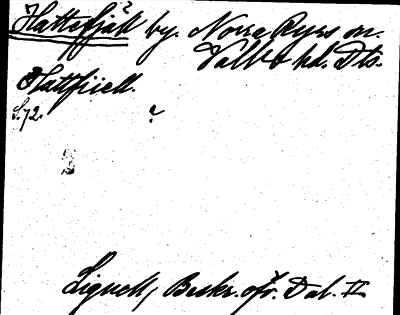 Hattefjäll by. Norra Ryrs sn.
Valbo hd. Dls.
Hattfiiell.
S. 72. ?
Lignell, Beskr. öfv. Dal. II